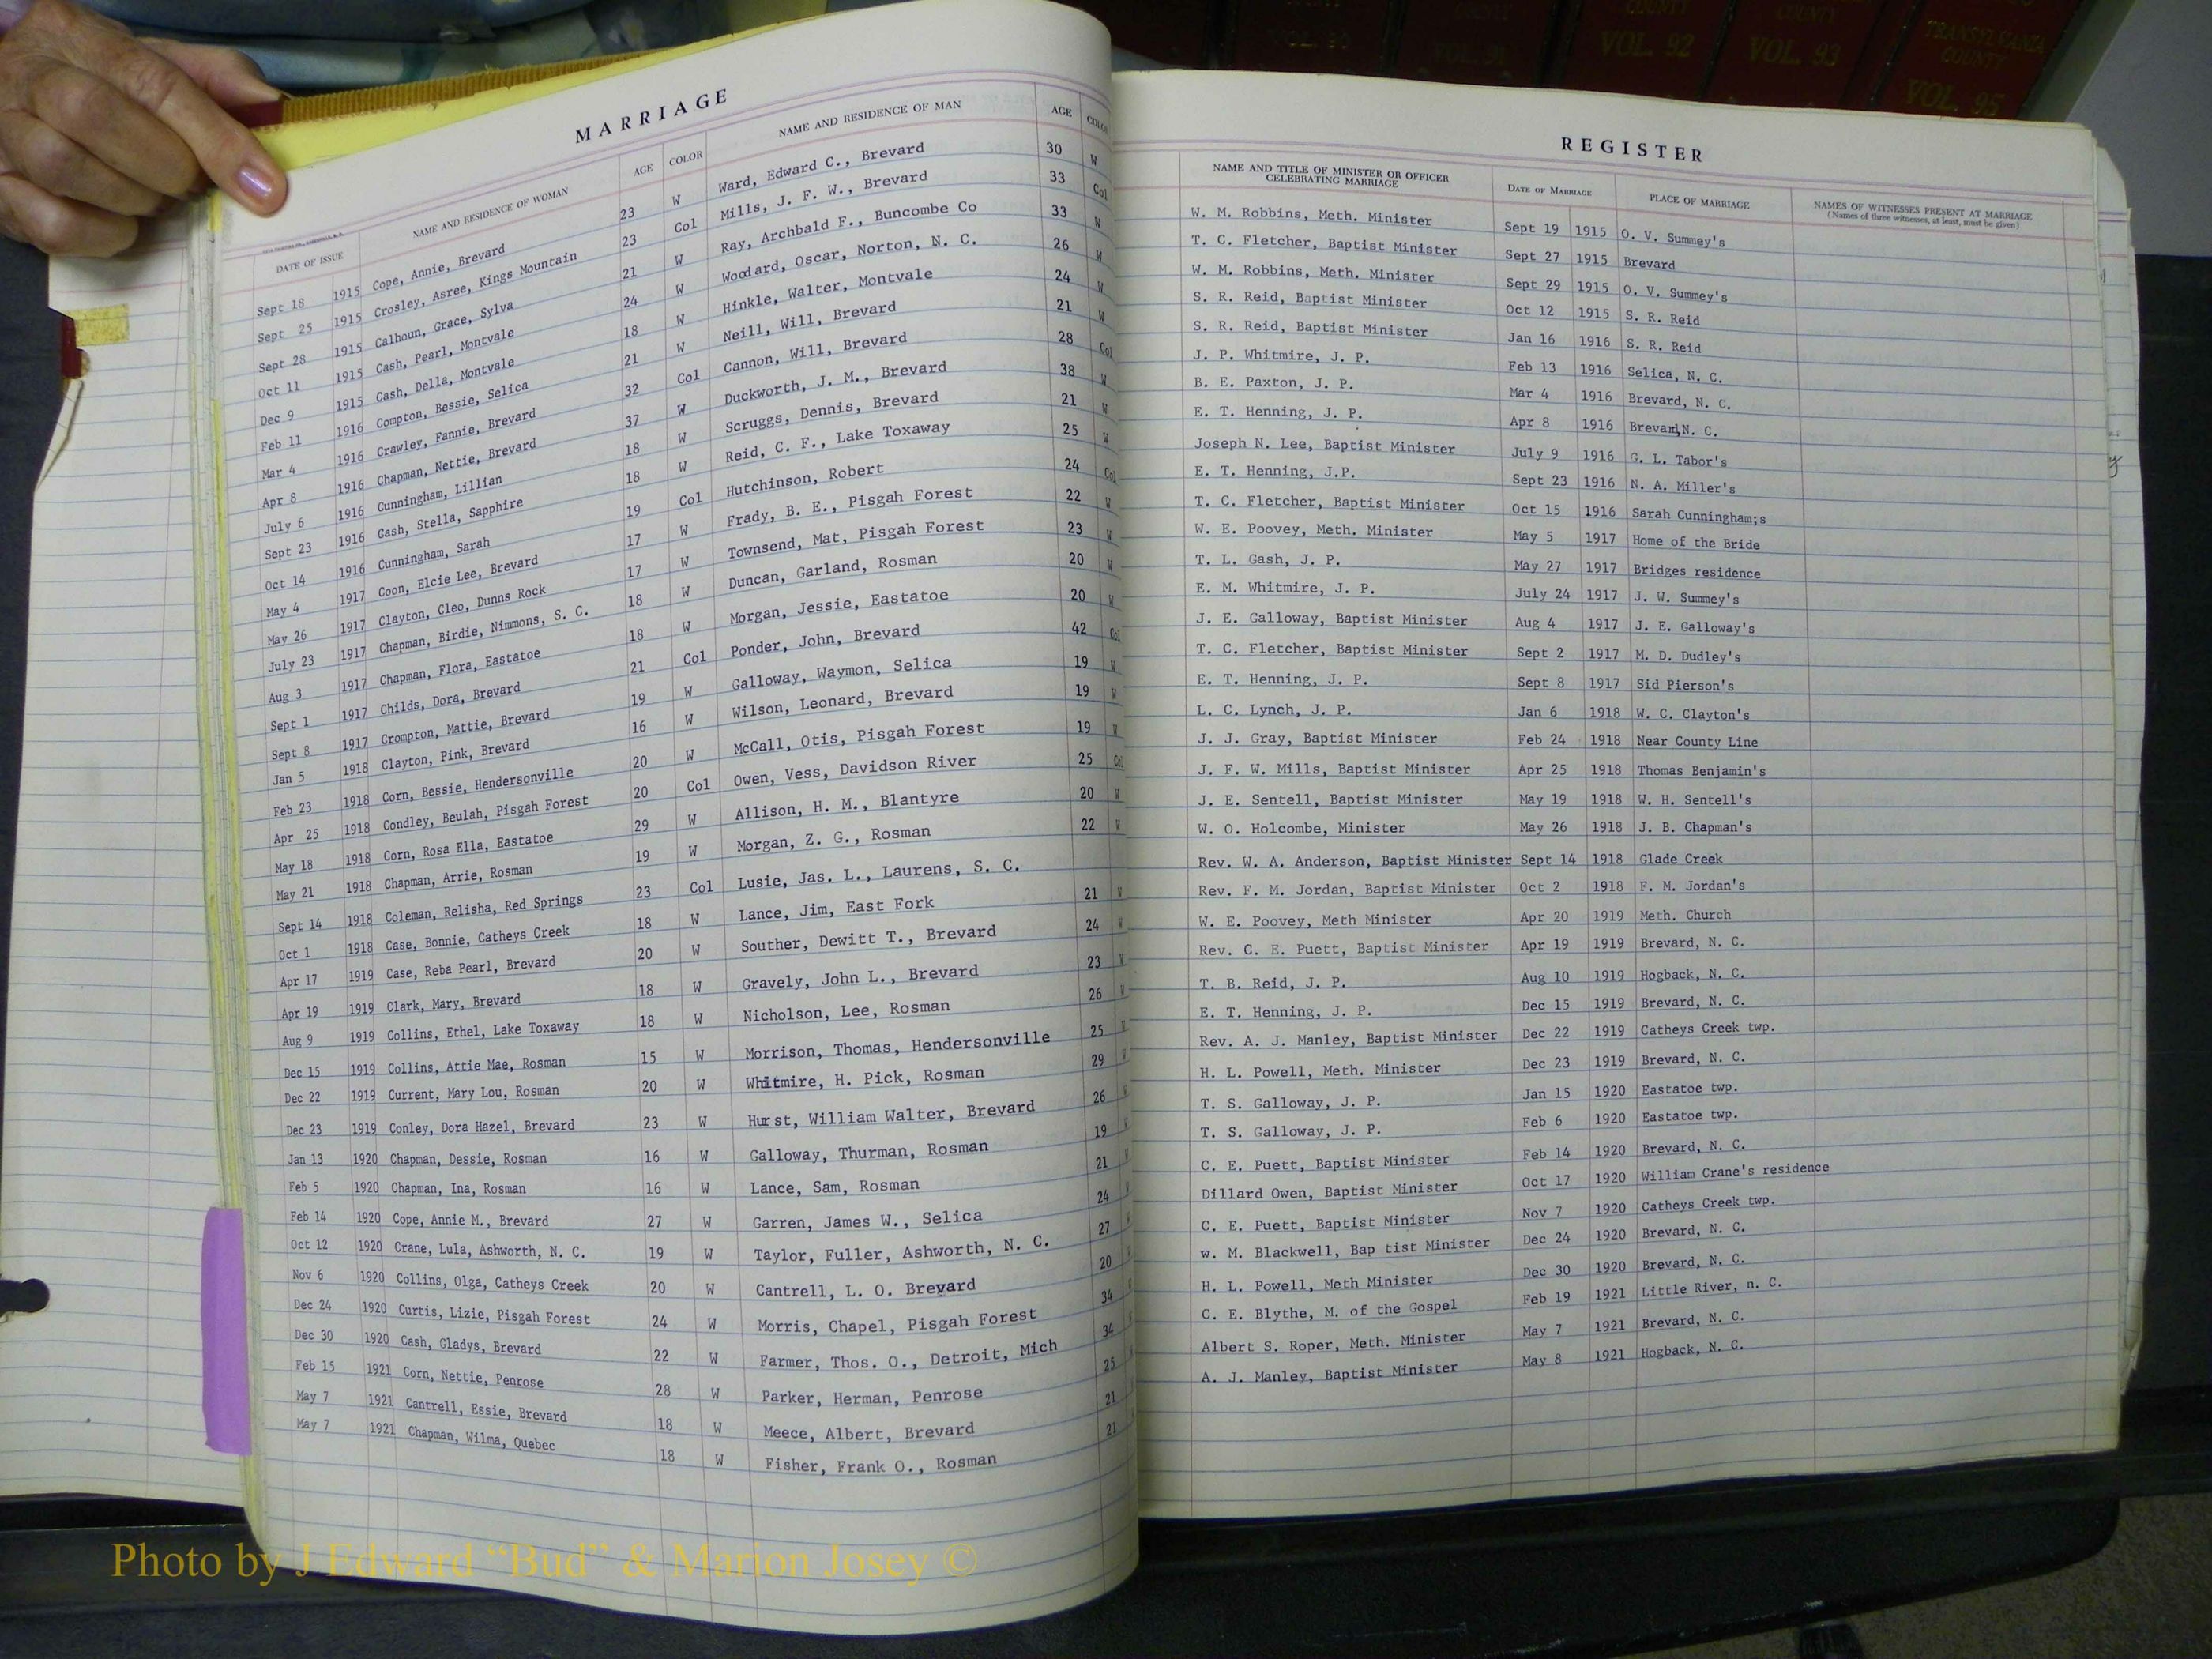 COUNTY VOL. 90
COUNTY VOL. 91
COUNTY VOL. 92
COUNTY VOL. 93
TRANSYLVANIA COUNTY VOL. 95
MARRIAGE
DATE OF ISSUE NAME AND RESIDENCE OF WOMAN AGE COLOR NAME AND RESIDENCE OF MAN AGE COLOR
Sept 18 1915 Cope, Annie, Brevard 23 W Ward, Edward C., Brevard 30 W
Sept 25 1915 Crosley, Asree, Kings Mountain 23 Col Mills, J. F. W., Brevard 33 Col
Sept 28 1915 Calhoun, Grace, Sylva 21 W Ray, Archbald F., Buncombe Co 33 W
Oct 11 1915 Cash, Pearl, Montvale 24 W Woodard, Oscar, Norton, N. C. 26 W
Dec 9 1915 Cash, Della, Montvale 18 W Hinkle, Walter, Montvale 24 W
Feb 11 1916 Compton, Bessie, Selica 21 W Neill, Will, Brevard 21 W
Mar 4 1916 Crawley, Fannie, Brevard 32 Col Cannon, Will, Brevard 28 Col
Apr 8 1916 Chapman, Nettie, Brevard 37 W Duckworth, J. M., Brevard 38 W
July 6 1916 Cunningham, Lillian 18 W Scruggs, Dennis, Brevard 21 W
Sept 23 1916 Cash, Stella, Sapphire 18 W Reid, C. F., Lake Toxaway 25 W
Oct 14 1916 Cunningham, Sarah 19 Col Hutchinson, Robert 24 Col
May 4 1917 Coon, Elcie Lee, Brevard 17 W Frady, B. E., Pisgah Forest 22 W
May 26 1917 Clayton, Cleo, Dunns Rock 17 W Townsend, Mat, Pisgah Forest 23 W
July 23 1917 Chapman, Birdie, Nimmons, S. C. 18 W Duncan, Garland, Rosman 20 W
Aug 3 1917 Chapman, Flora, Eastatoe 18 W Morgan, Jessie, Eastatoe 20 W
Sept 1 1917 Childs, Dora, Brevard 21 Col Ponder, John, Brevard 42 Col
Sept 8 1917 Crompton, Mattie, Brevard 19 W Galloway, Waymon, Selica 19 W
Jan 5 1918 Clayton, Pink, Brevard 16 W Wilson, Leonard, Brevard 19 W
Feb 23 1918 Corn, Bessie, Hendersonville 20 W McCall, Otis, Pisgah Forest 19 W
Apr 25 1918 Condley, Beulah, Pisgah Forest 20 Col Owen, Vess, Davidson River 25 Col
May 18 1918 Corn, Rosa Ella, Eastatoe 29 W Allison, H. M., Blantyre 20 W
May 21 1918 Chapman, Arrie, Rosman 19 W Morgan, Z. G., Rosman 22 W
Sept 14 1918 Coleman, Relisha, Red Springs 23 Col Lusie, Jas. L., Laurens, S. C.
Oct 1 1918 Case, Bonnie, Catheys Creek 18 W Lance, Jim, East Fork 21 W
Apr 17 1919 Case, Reba Pearl, Brevard 20 W Souther, Dewitt T., Brevard 24 W
Apr 19 1919 Clark, Mary, Brevard 18 W Gravely, John L., Brevard 23 W
Aug 9 1919 Collins, Ethel, Lake Toxaway 18 W Nicholson, Lee, Rosman 26 W
Dec 15 1919 Collins, Attie Mae, Rosman 15 W Morrison, Thomas, Hendersonville 25 W
Dec 22 1919 Current, Mary Lou, Rosman 20 W Whitmire, H. Pick, Rosman 29 W
Dec 23 1919 Conley, Dora Hazel, Brevard 23 W Hurst, William Walter, Brevard 26
Jan 13 1920 Chapman, Dessie, Rosman 16 W Galloway, Thurman, Rosman 19
Feb 5 1920 Chapman, Ina, Rosman 16 W Lance, Sam, Rosman 21
Feb 14 1920 Cope, Annie M., Brevard 27 W Garren, James W., Selica 24
Oct 12 1920 Crane, Lula, Ashworth, N. C. 19 W Taylor, Fuller, Ashworth, N. C. 27
Nov 6 1920 Collins, Olga, Catheys Creek 20 W Cantrell, L. O. Brevard 20
Dec 24 1920 Curtis, Lizie, Pisgah Forest 24 W Morris, Chapel, Pisgah Forest 34
Dec 30 1920 Cash, Gladys, Brevard 22 W Farmer, Thos. O., Detroit, Mich 34
Feb 15 1921 Corn, Nettie, Penrose 28 W Parker, Herman, Penrose 25
May 7 1921 Cantrell, Essie, Brevard 18 W Meece, Albert, Brevard 21
May 7 1921 Chapman, Wilma, Quebec 18 W Fisher, Frank O., Rosman 21
REGISTER
NAME AND TITLE OF MINISTER OR OFFICER CELEBRATING MARRIAGE DATE OF MARRIAGE PLACE OF MARRIAGE NAMES OF WITNESSES PRESENT AT MARRIAGE
(Names of three witnesses, at least, must be given)
W. M. Robbins, Meth. Minister Sept 19 1915 O. V. Summey's
T. C. Fletcher, Baptist Minister Sept 27 1915 Brevard
W. M. Robbins, Meth. Minister Sept 29 1915 O. V. Summey's
S. R. Reid, Baptist Minister Oct 12 1915 S. R. Reid
S. R. Reid, Baptist Minister Jan 16 1916 S. R. Reid
J. P. Whitmire, J. P. Feb 13 1916 Selica, N. C.
B. E. Paxton, J. P. Mar 4 1916 Brevard, N. C.
E. T. Henning, J. P. Apr 8 1916 Brevard,N. C.
Joseph N. Lee, Baptist Minister July 9 1916 G. L. Tabor's
E. T. Henning, J.P. Sept 23 1916 N. A. Miller's
T. C. Fletcher, Baptist Minister Oct 15 1916 Sarah Cunningham;s
W. E. Poovey, Meth. Minister May 5 1917 Home of the Bride
T. L. Gash, J. P. May 27 1917 Bridges residence
E. M. Whitmire, J. P. July 24 1917 J. W. Summey's
J. E. Galloway, Baptist Minister Aug 4 1917 J. E. Galloway's
T. C. Fletcher, Baptist Minister Sept 2 1917 M. D. Dudley's
E. T. Henning, J. P. Sept 8 1917 Sid Pierson's
L. C. Lynch, J. P. Jan 6 1918 W. C. Clayton's
J. J. Gray, Baptist Minister Feb 24 1918 Near County Line
J. F. W. Mills, Baptist Minister Apr 25 1918 Thomas Benjamin's
J. E. Sentell, Baptist Minister May 19 1918 W. H. Sentell's
W. O. Holcombe, Minister May 26 1918 J. B. Chapman's
Rev. W. A. Anderson, Baptist Minister Sept 14 1918 Glade Creek
Rev. F. M. Jordan, Baptist Minister Oct 2 1918 F. M. Jordan's
W. E. Poovey, Meth Minister Apr 20 1919 Meth. Church
Rev. C. E. Puett, Baptist Minister Apr 19 1919 Brevard, N. C.
T. B. Reid, J. P. Aug 10 1919 Hogback, N. C.
E. T. Henning, J. P. Dec 15 1919 Brevard, N. C.
Rev. A. J. Manley, Baptist Minister Dec 22 1919 Catheys Creek twp.
H. L. Powell, Meth. Minister Dec 23 1919 Brevard, N. C.
T. S. Galloway, J. P. Jan 15 1920 Eastatoe twp.
T. S. Galloway, J. P. Feb 6 1920 Eastatoe twp.
C. E. Puett, Baptist Minister Feb 14 1920 Brevard, N. C.
Dillard Owen, Baptist Minister Oct 17 1920 William Crane's residence
C. E. Puett, Baptist Minister Nov 7 1920 Catheys Creek twp.
w. M. Blackwell, Bap tist Minister Dec 24 1920 Brevard, N. C.
H. L. Powell, Meth Minister Dec 30 1920 Brevard, N. C.
C. E. Blythe, M. of the Gospel Feb 19 1921 Little River, n. C.
Albert S. Roper, Meth. Minister May 7 1921 Brevard, N. C.
A. J. Manley, Baptist Minister May 8 1921 Hogback, N. C.
Photo by J Edward “Bud” & Marion Josey ©